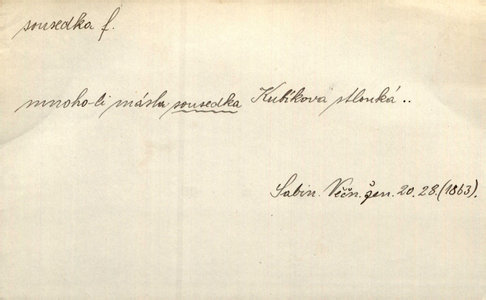 sousedka f.
mnoho-li másla sousedka Kubíkova stlouká ..
Sabin. Věčn. žen. 20. 28. (1863).